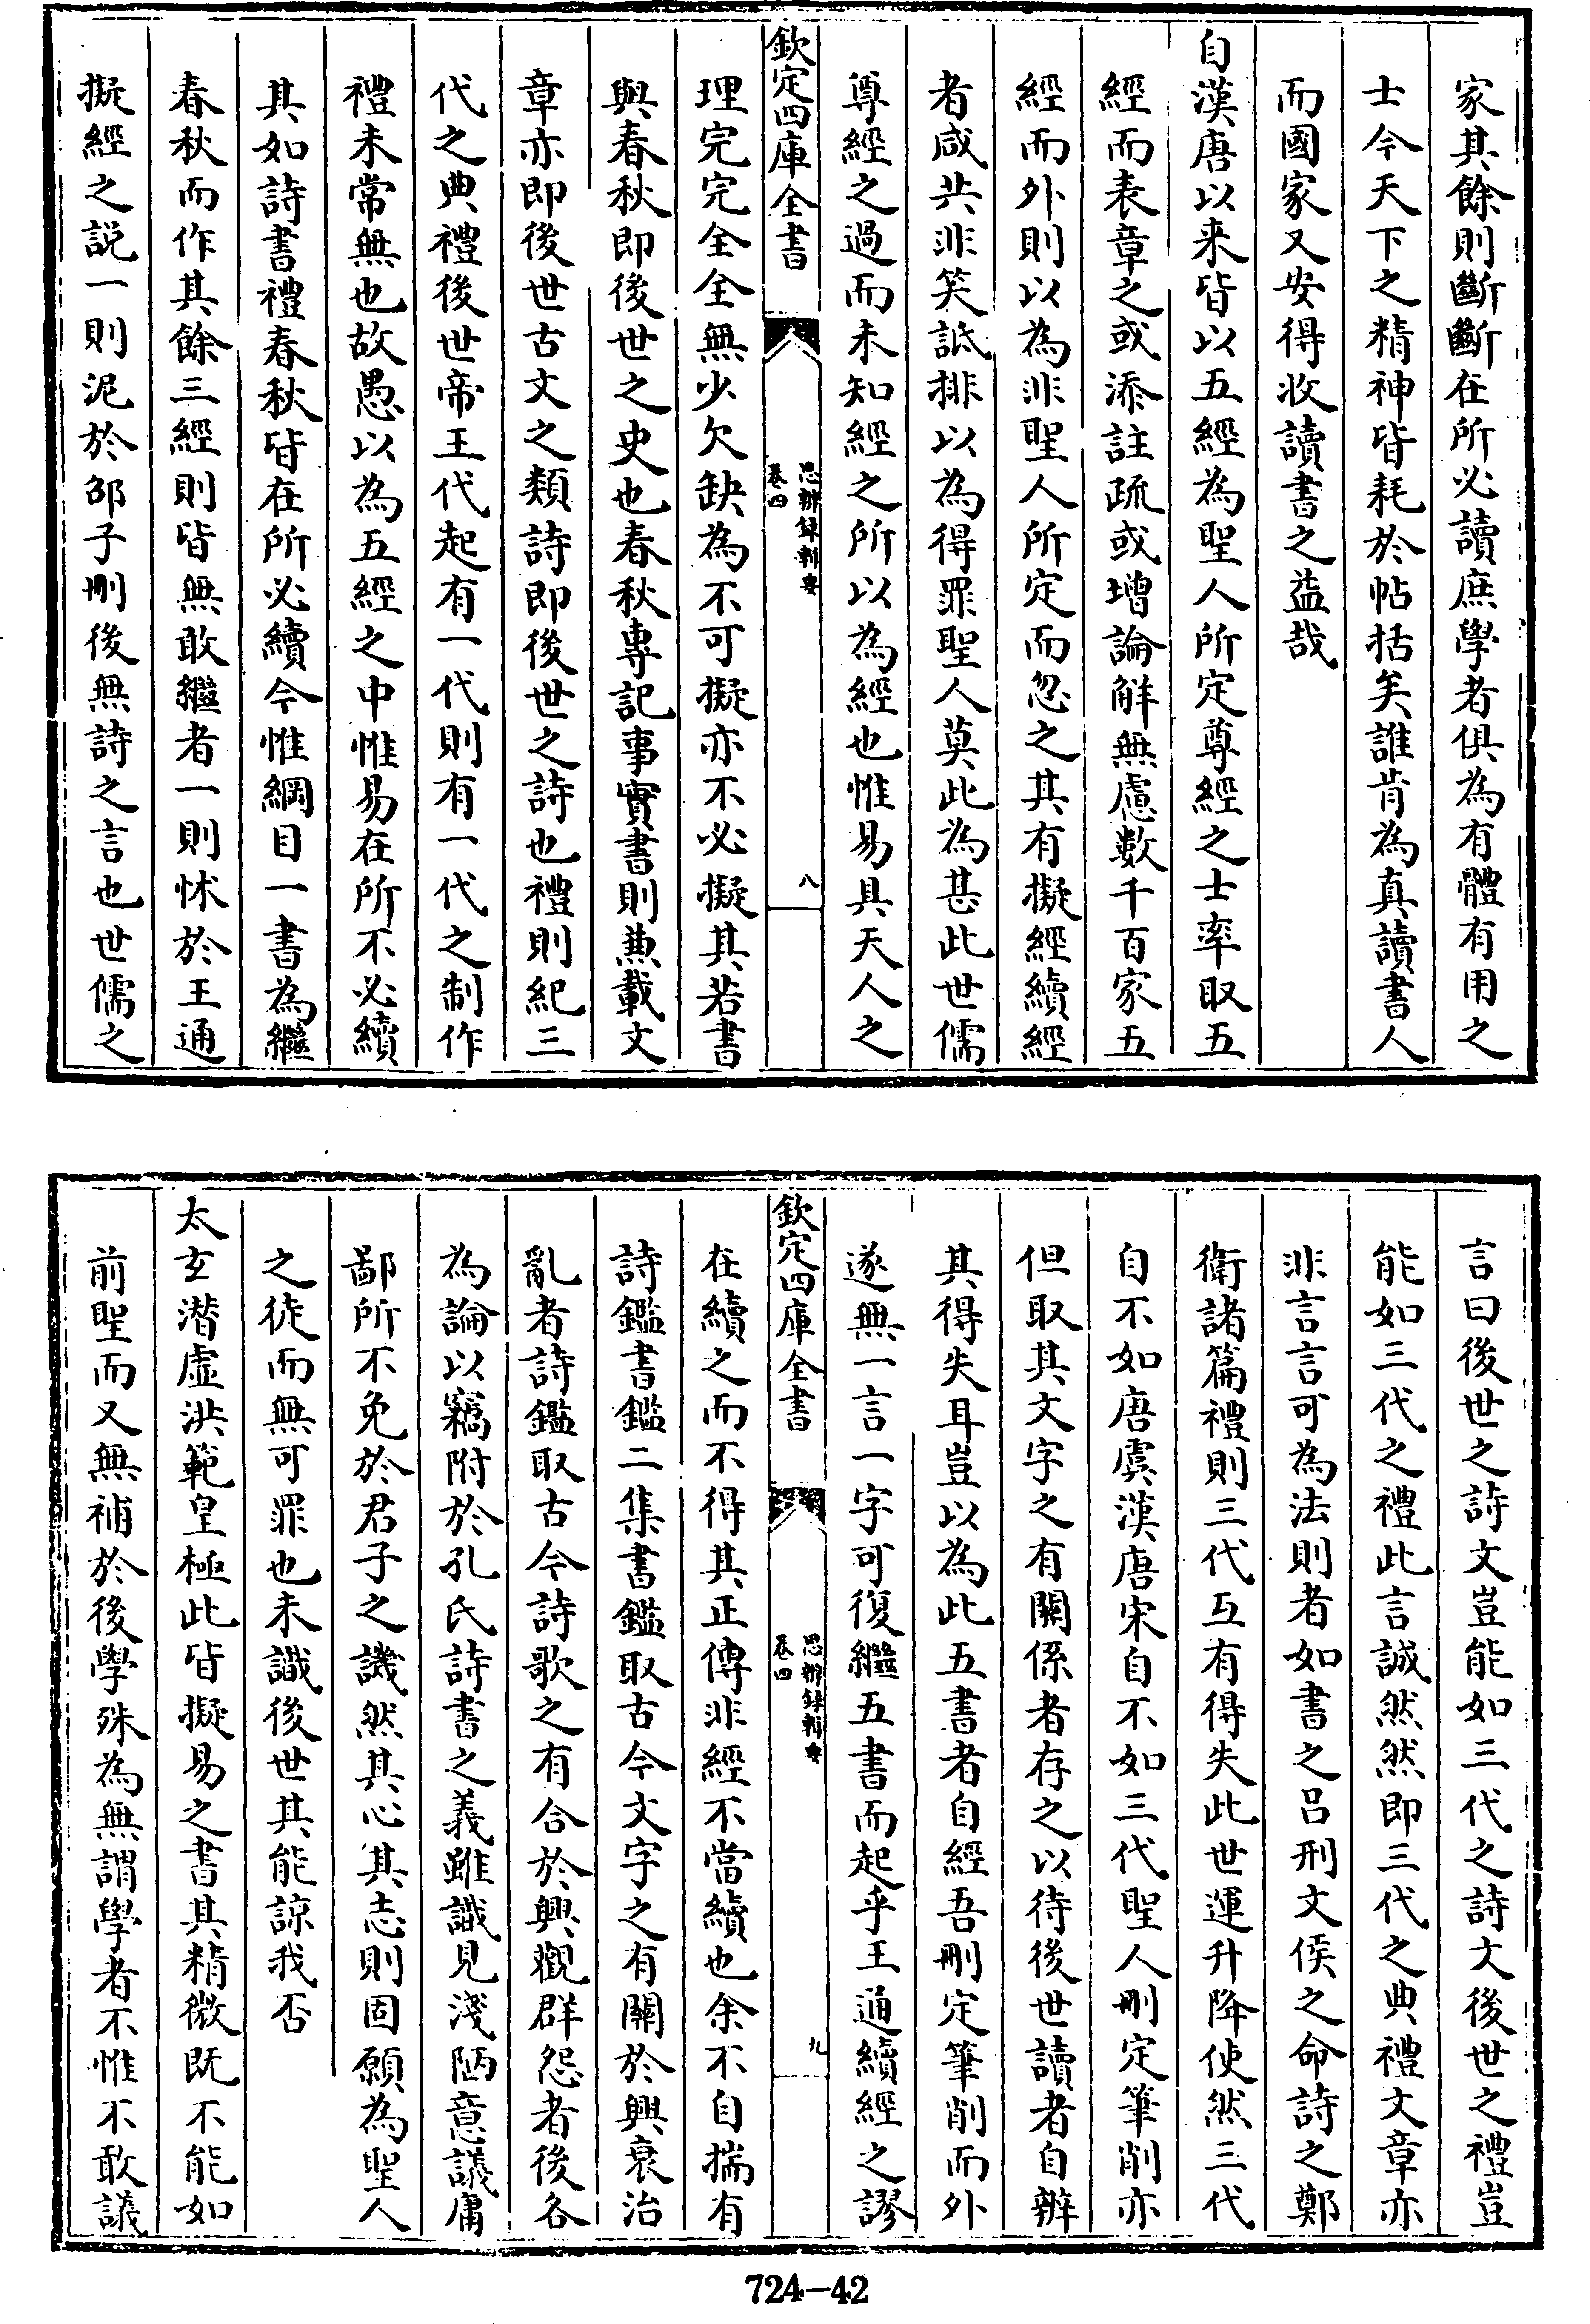 家其餘則斷斷在所必讀庶學者俱為有體有用之
士今天下之精神皆耗於帖括矣誰肯為真讀書人
而國家又安得收讀書之益哉
自漢唐以来皆以五經為聖人所定尊經之士率取五
經而表章之或添註疏或增論解無慮數千百家五
經而外則以為非聖人所定而忽之其有擬經續經
者咸共非笑詆排以為得罪聖人莫此為甚此世儒
尊經之過而未知經之所以為經也惟易具天人之
欽定四庫全書
思辨録輯要
卷四
八
理完完全全無少欠缺為不可擬亦不必擬其若書
與春秋即後世之史也春秋專記事實書則兼載文
章亦即後世古文之類詩即後世之詩也禮則紀三
代之典禮後世帝王代起有一代則有一代之制作
禮未常無也故愚以為五經之中惟易在所不必續
其如詩書禮春秋皆在所必續今惟綱目一書為繼
春秋而作其餘三經則皆無敢繼者一則怵於王通
擬經之説一則泥於邵子刪後無詩之言也世儒之
言曰後世之詩文豈能如三代之詩文後世之禮豈
能如三代之禮此言誠然然即三代之典禮文章亦
非言言可為法則者如書之呂刑文侯之命詩之鄭
衛諸篇禮則三代互有得失此世運升降使然三代
自不如唐虞漢唐宋自不如三代聖人刪定筆削亦
但取其文字之有關係者存之以待後世讀者自辨
其得失耳豈以為此五書者自經吾刪定筆削而外
遂無一言一字可復繼五書而起乎王通續經之謬
欽定四庫全書
思辨録輯要
卷四
九
在續之而不得其正傳非經不當續也余不自揣有
詩鑑書鑑二集書鑑取古今文字之有關於興衰治
亂者詩鑑取古今詩歌之有合於興觀群怨者後各
為論以竊附於孔氏詩書之義雖識見淺陋意議庸
鄙所不免於君子之譏然其心其志則固願為聖人
之徒而無可罪也未識後世其能諒我否
太玄潛虛洪範皇極此皆擬易之書其精微既不能如
前聖而又無補於後學殊為無謂學者不惟不敢議
724-42